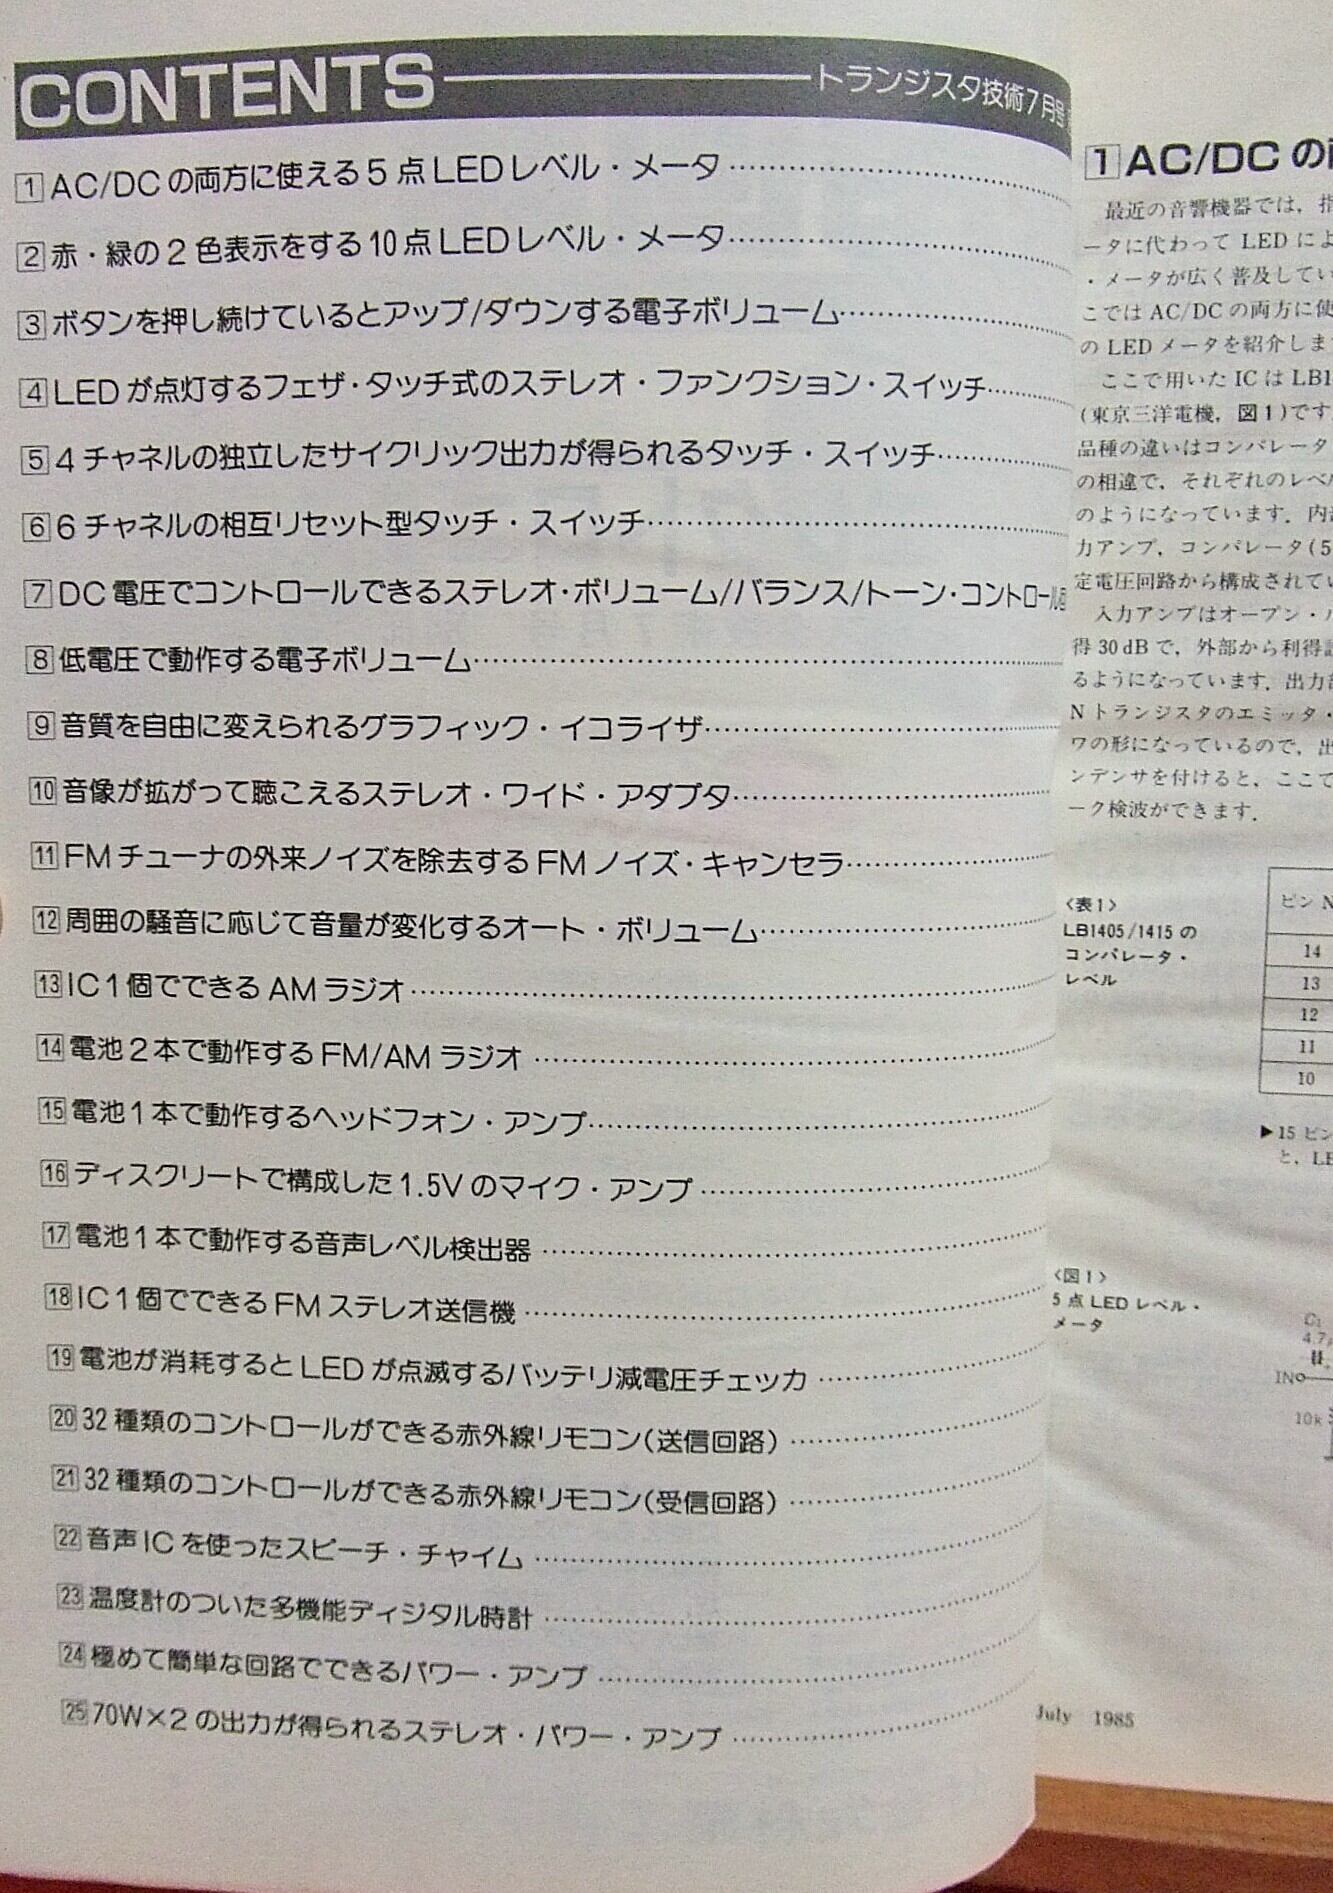 CONTENTS トランジスタ技術7月号
1 AC/DCの両方に使える5点LEDレベル・メータ
2 赤・緑の2色表示をする10点LEDレベル・メータ
3 ボタンを押し続けているとアップ/ダウンする電子ボリューム
4 LEDが点灯するフェザ・タッチ式のステレオ・ファンクション・スイッチ
5 4チャネルの独立したサイクリック出力が得られるタッチ・スイッチ
6 6チャネルの相互リセット型タッチ・スイッチ
7 DC電圧でコントロールできるステレオ・ボリューム/バランス/トーン・コントロール
8 低電圧で動作する電子ボリューム
9 音質を自由に変えられるグラフィック・イコライザ
10 音像が拡がって聴こえるステレオ・ワイド・アダプタ
11 FMチューナの外来ノイズを除去するFMノイズ・キャンセラ
12 周囲の騒音に応じて音量が変化するオート・ボリューム
13 IC1個でできるAMラジオ
14 電池2本で動作するFM/AMラジオ
15 電池1本で動作するヘッドフォン・アンプ
16 ディスクリートで構成した1.5Vのマイク・アンプ
17 電池1本で動作する音声レベル検出器
18 IC1個でできるFMステレオ送信機
19 電池が消耗するとLEDが点滅するバッテリ減電圧チェッカ
20 32種類のコントロールができる赤外線リモコン(送信回路)
21 32種類のコントロールができる赤外線リモコン(受信回路)
22 音声ICを使ったスピーチ・チャイム
23 温度計のついた多機能ディジタル時計
24 極めて簡単な回路でできるパワー・アンプ
25 70W×2の出力が得られるステレオ・パワー・アンプ
1 AC/DCの
最近の音響機器では，指
ータに代わってLEDによ
・メータが広く普及してい
こではAC/DCの両方に使
のLEDメータを紹介しま
ここで用いたICはLB1
(東京三洋電機，図1)です
品種の違いはコンパレータ
の相違で，それぞれのレベ
のようになっています．内
力アンプ，コンパレータ(5
定電圧回路から構成されてい
入力アンプはオープン・
得30dBで，外部から利得
るようになっています．出力
Nトランジスタのエミッタ・
ワの形になっているので，出
ンデンサを付けると，ここで
ーク検波ができます．
〈表1〉
LB1405/1415の
コンパレータ・
レベル
ピンN
14
13
12
11
10
▶15ピン
と，LE
〈図1〉
5点LEDレベル・
メータ
C1
4.7
IN
10k
July 1985